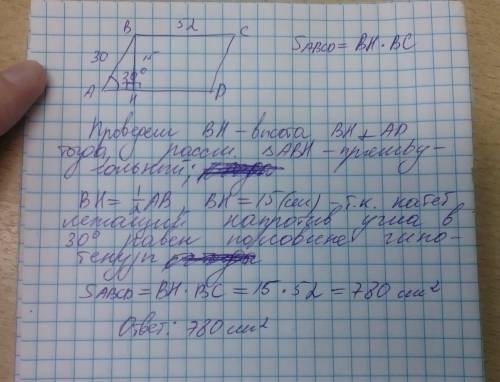 B 52 C
S ABCD = BH · BC
30 15
30°
A H D
Проведем BH – высота, BH ⊥ AD
тогда, рассм. ΔABH – прямоу-
гольный;
BH = 1/2 AB, BH = 15 (см) – т.к. катет
лежащий напротив угла в
30° равен половине гипо-
тенузы
S ABCD = BH · BC = 15 · 52 = 780 см²
Ответ: 780 см²